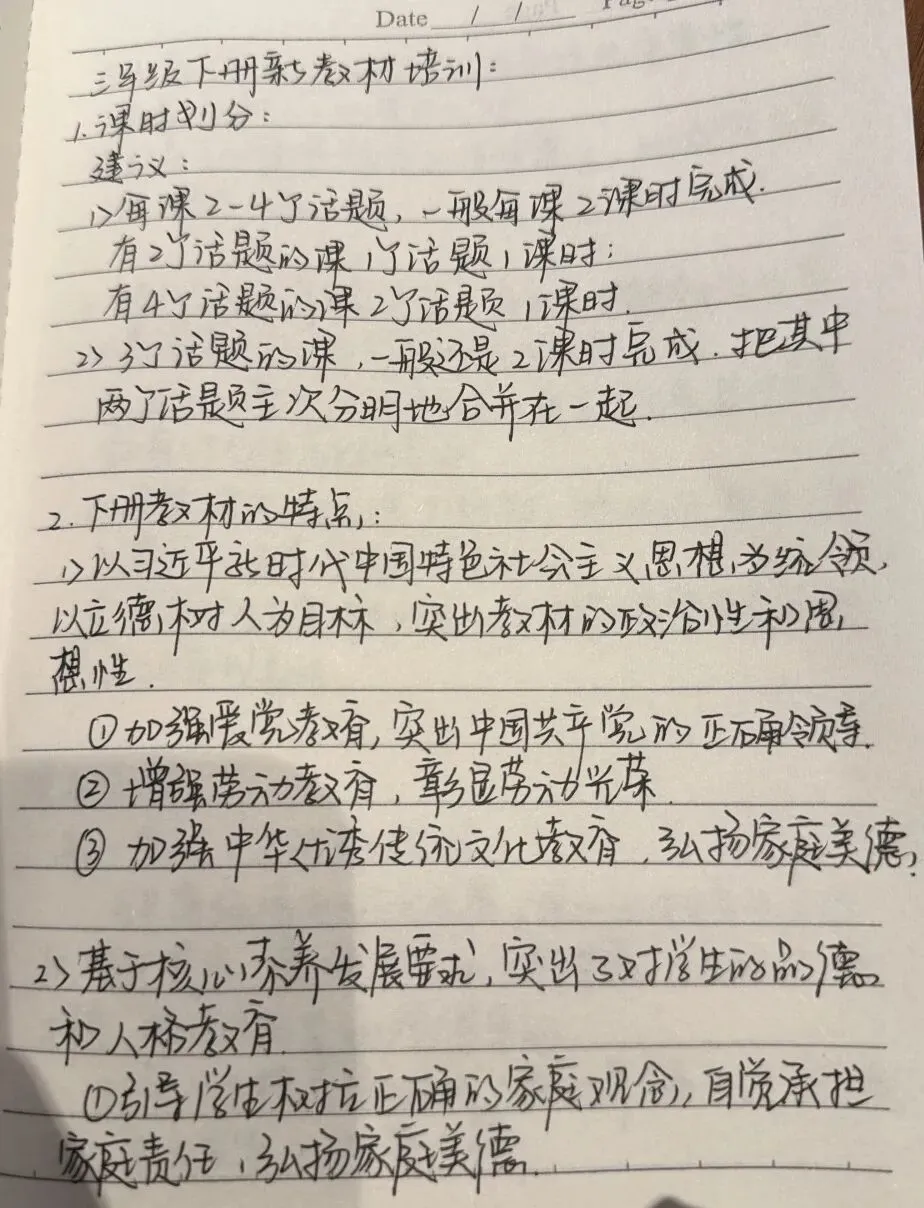 Date / / Page
三年级下册新教材培训：
1.课时划分：
建议：
1>每课2-4个话题，一般每课2课时完成.
有2个话题的课1个话题1课时；
有4个话题的课2个话题1课时.
2>3个话题的课，一般还是2课时完成.把其中
两个话题主次分明地合并在一起.
2.下册教材的特点：
1>以习近平新时代中国特色社会主义思想为统领，
以立德树人为目标，突出教材的政治性和思
想性.
①加强爱党教育，突出中国共产党的正确领导.
②增强劳动教育，彰显劳动光荣.
③加强中华优秀传统文化教育，弘扬家庭美德，
2>基于核心素养发展要求，突出了对学生的品德
和人格教育.
①引导学生树立正确的家庭观念，自觉承担
家庭责任，弘扬家庭美德.